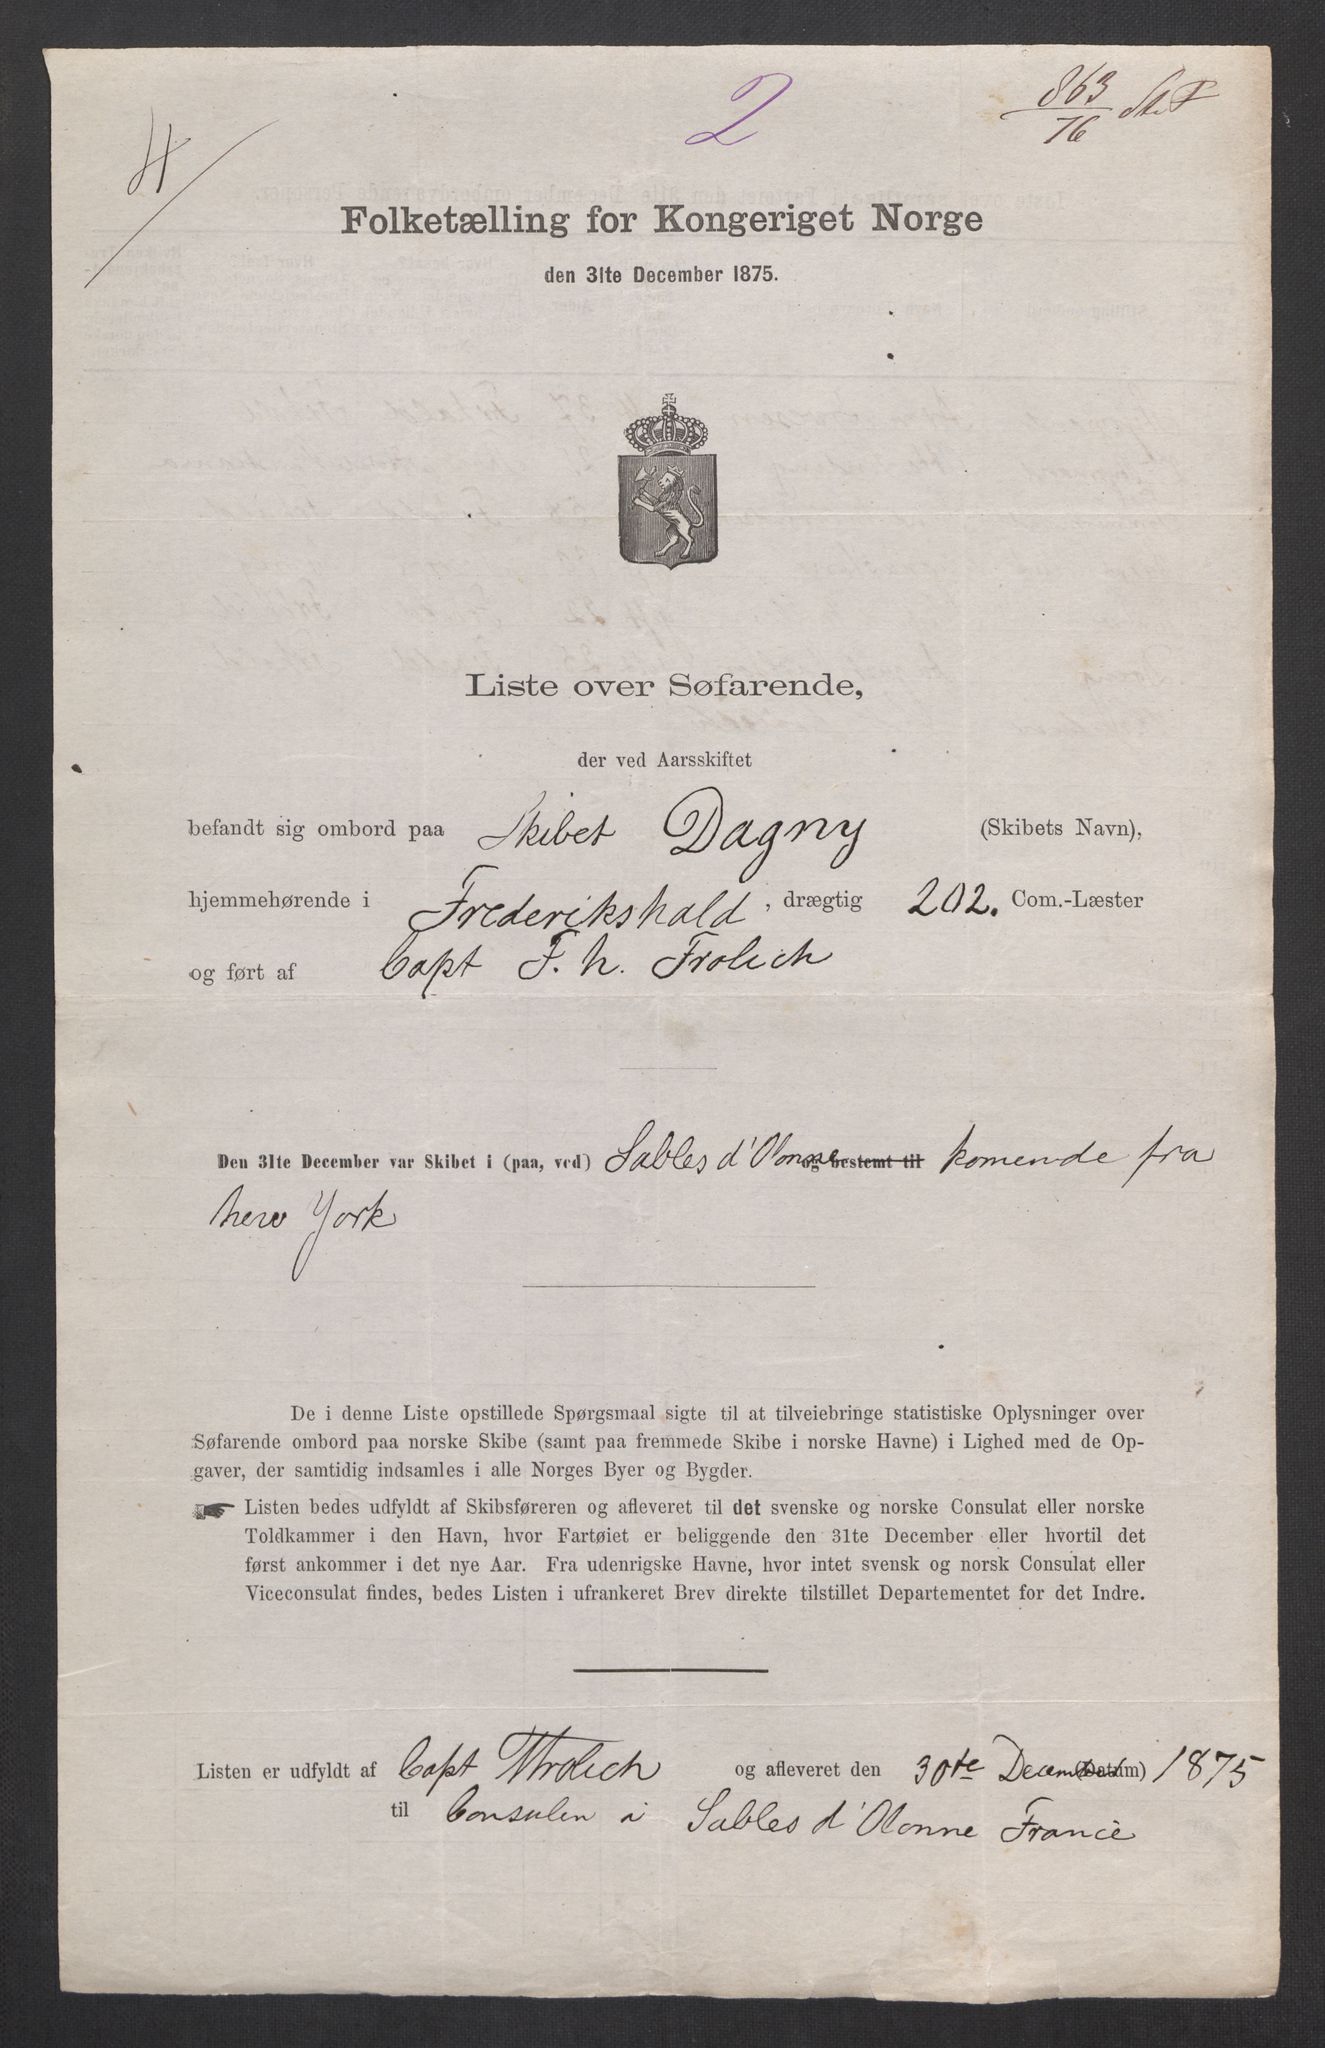 2
863
76
H
Folketælling for Kongeriget Norge
den 31te December 1875.
Liste over Søfarende,
der ved Aarsskiftet
befandt sig ombord paa Skibet Dagny (Skibets Navn),
hjemmehørende i Frederikshald, drægtig 202. Com.-Læster
og ført af Capt F. h. Frolich
Den 31te December var Skibet i (paa, ved) Sables d'Olonne og bestemt til komende fra
new York
De i denne Liste opstillede Spørgsmaal sigte til at tilveiebringe statistiske Oplysninger over
Søfarende ombord paa norske Skibe (samt paa fremmede Skibe i norske Havne) i Lighed med de Op-
gaver, der samtidig indsamles i alle Norges Byer og Bygder.
☛ Listen bedes udfyldt af Skibsføreren og afleveret til det svenske og norske Consulat eller norske
Toldkammer i den Havn, hvor Fartøiet er beliggende den 31te December eller hvortil det
først ankommer i det nye Aar. Fra udenrigske Havne, hvor intet svensk og norsk Consulat eller
Viceconsulat findes, bedes Listen i ufrankeret Brev direkte tilstillet Departementet for det Indre.
Listen er udfyldt af Capt Frolich og afleveret den 30te December (Datum) 1875
til Consulen i Sables d'Olonne France